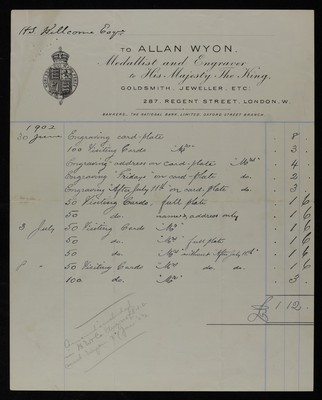 HS Wellcome Esqre
TO ALLAN WYON.
Medallist and Engraver
to His Majesty The King.
GOLDSMITH, JEWELLER, ETC.
287, REGENT STREET, LONDON.W.
BANKERS, THE NATIONAL BANK, LIMITED, OXFORD STREET BRANCH.
1902
30 June Engraving card-plate . 8 .
100 Visiting Cards "Mrs" . 3 .
Engraving address on card-plate "Mrs" . 4 .
Engraving "Fridays" on card-plate do. . 2 .
Engraving "After July 11th" on card-plate do . 3 .
50 Visiting Cards, full plate . 1 6
50 do. name & address only . 1 6
3 July 50 Visiting Cards "Mrs" . 1 6
50 do. "Mrs" full plate . 1 6
50 do. "Mrs" without "After July 11th" . 1 6
8 " 50 Visiting Cards "Mrs" do. do. . 1 6
100 do. "Mrs" . 3 .
£ 1 12 .